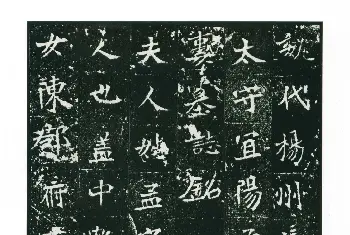 魏代楊州
太守宜陽
妻墓誌銘
夫人姓孟
人也盖中
女陳郡府